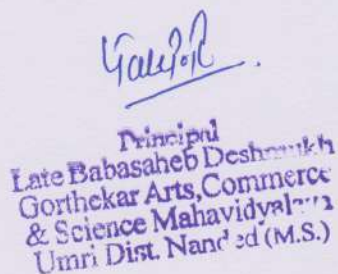 Principal
Late Babasaheb Deshmukh
Gorthekar Arts, Commerce
& Science Mahavidyalaya
Umri Dist. Nanded (M.S.)